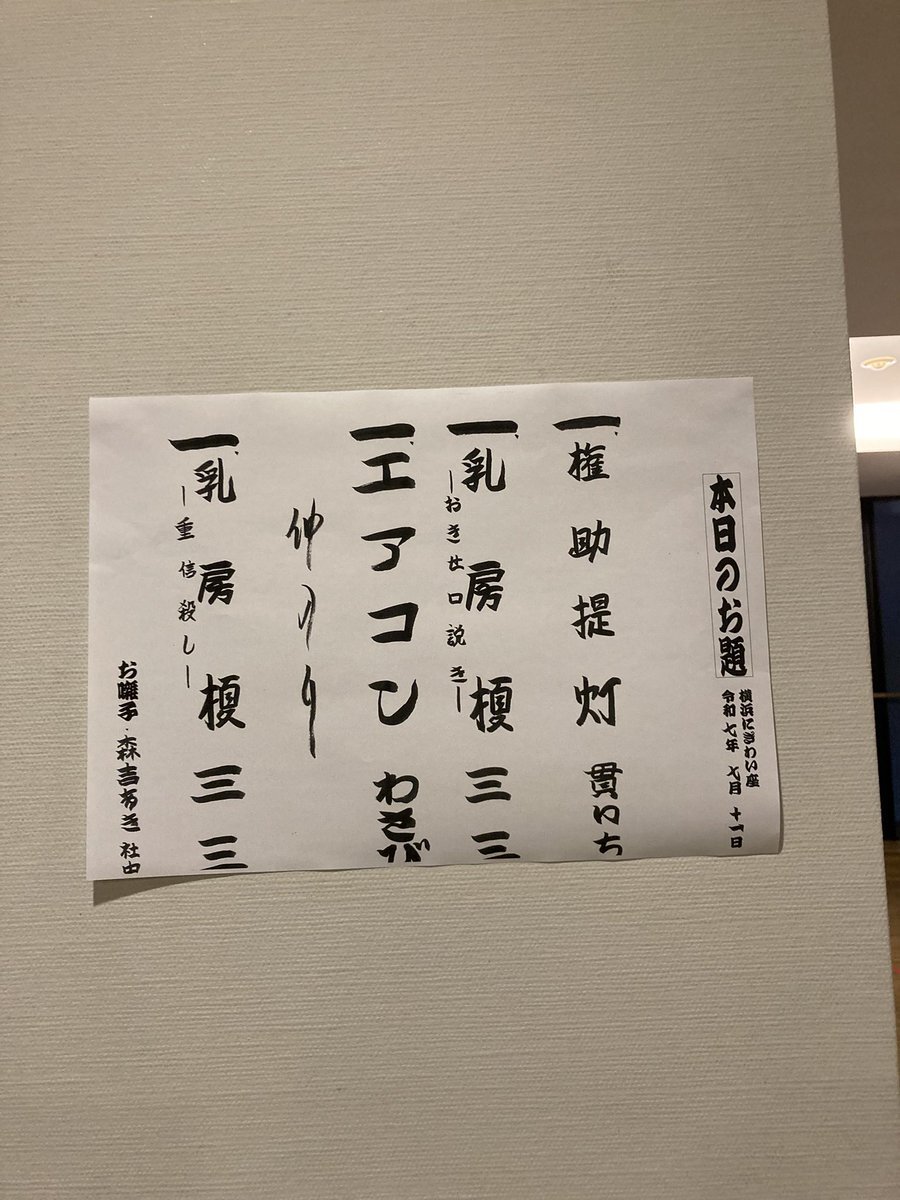 本日のお題
横浜にぎわい座
令和七年 七月 十一日
一、権助提灯 貫いち
一、乳房榎 三三
―おきせ口説き―
一、エアコン わさび
仲入り
一、乳房榎 三三
―重信殺し―
お囃子・森吉あき 社中